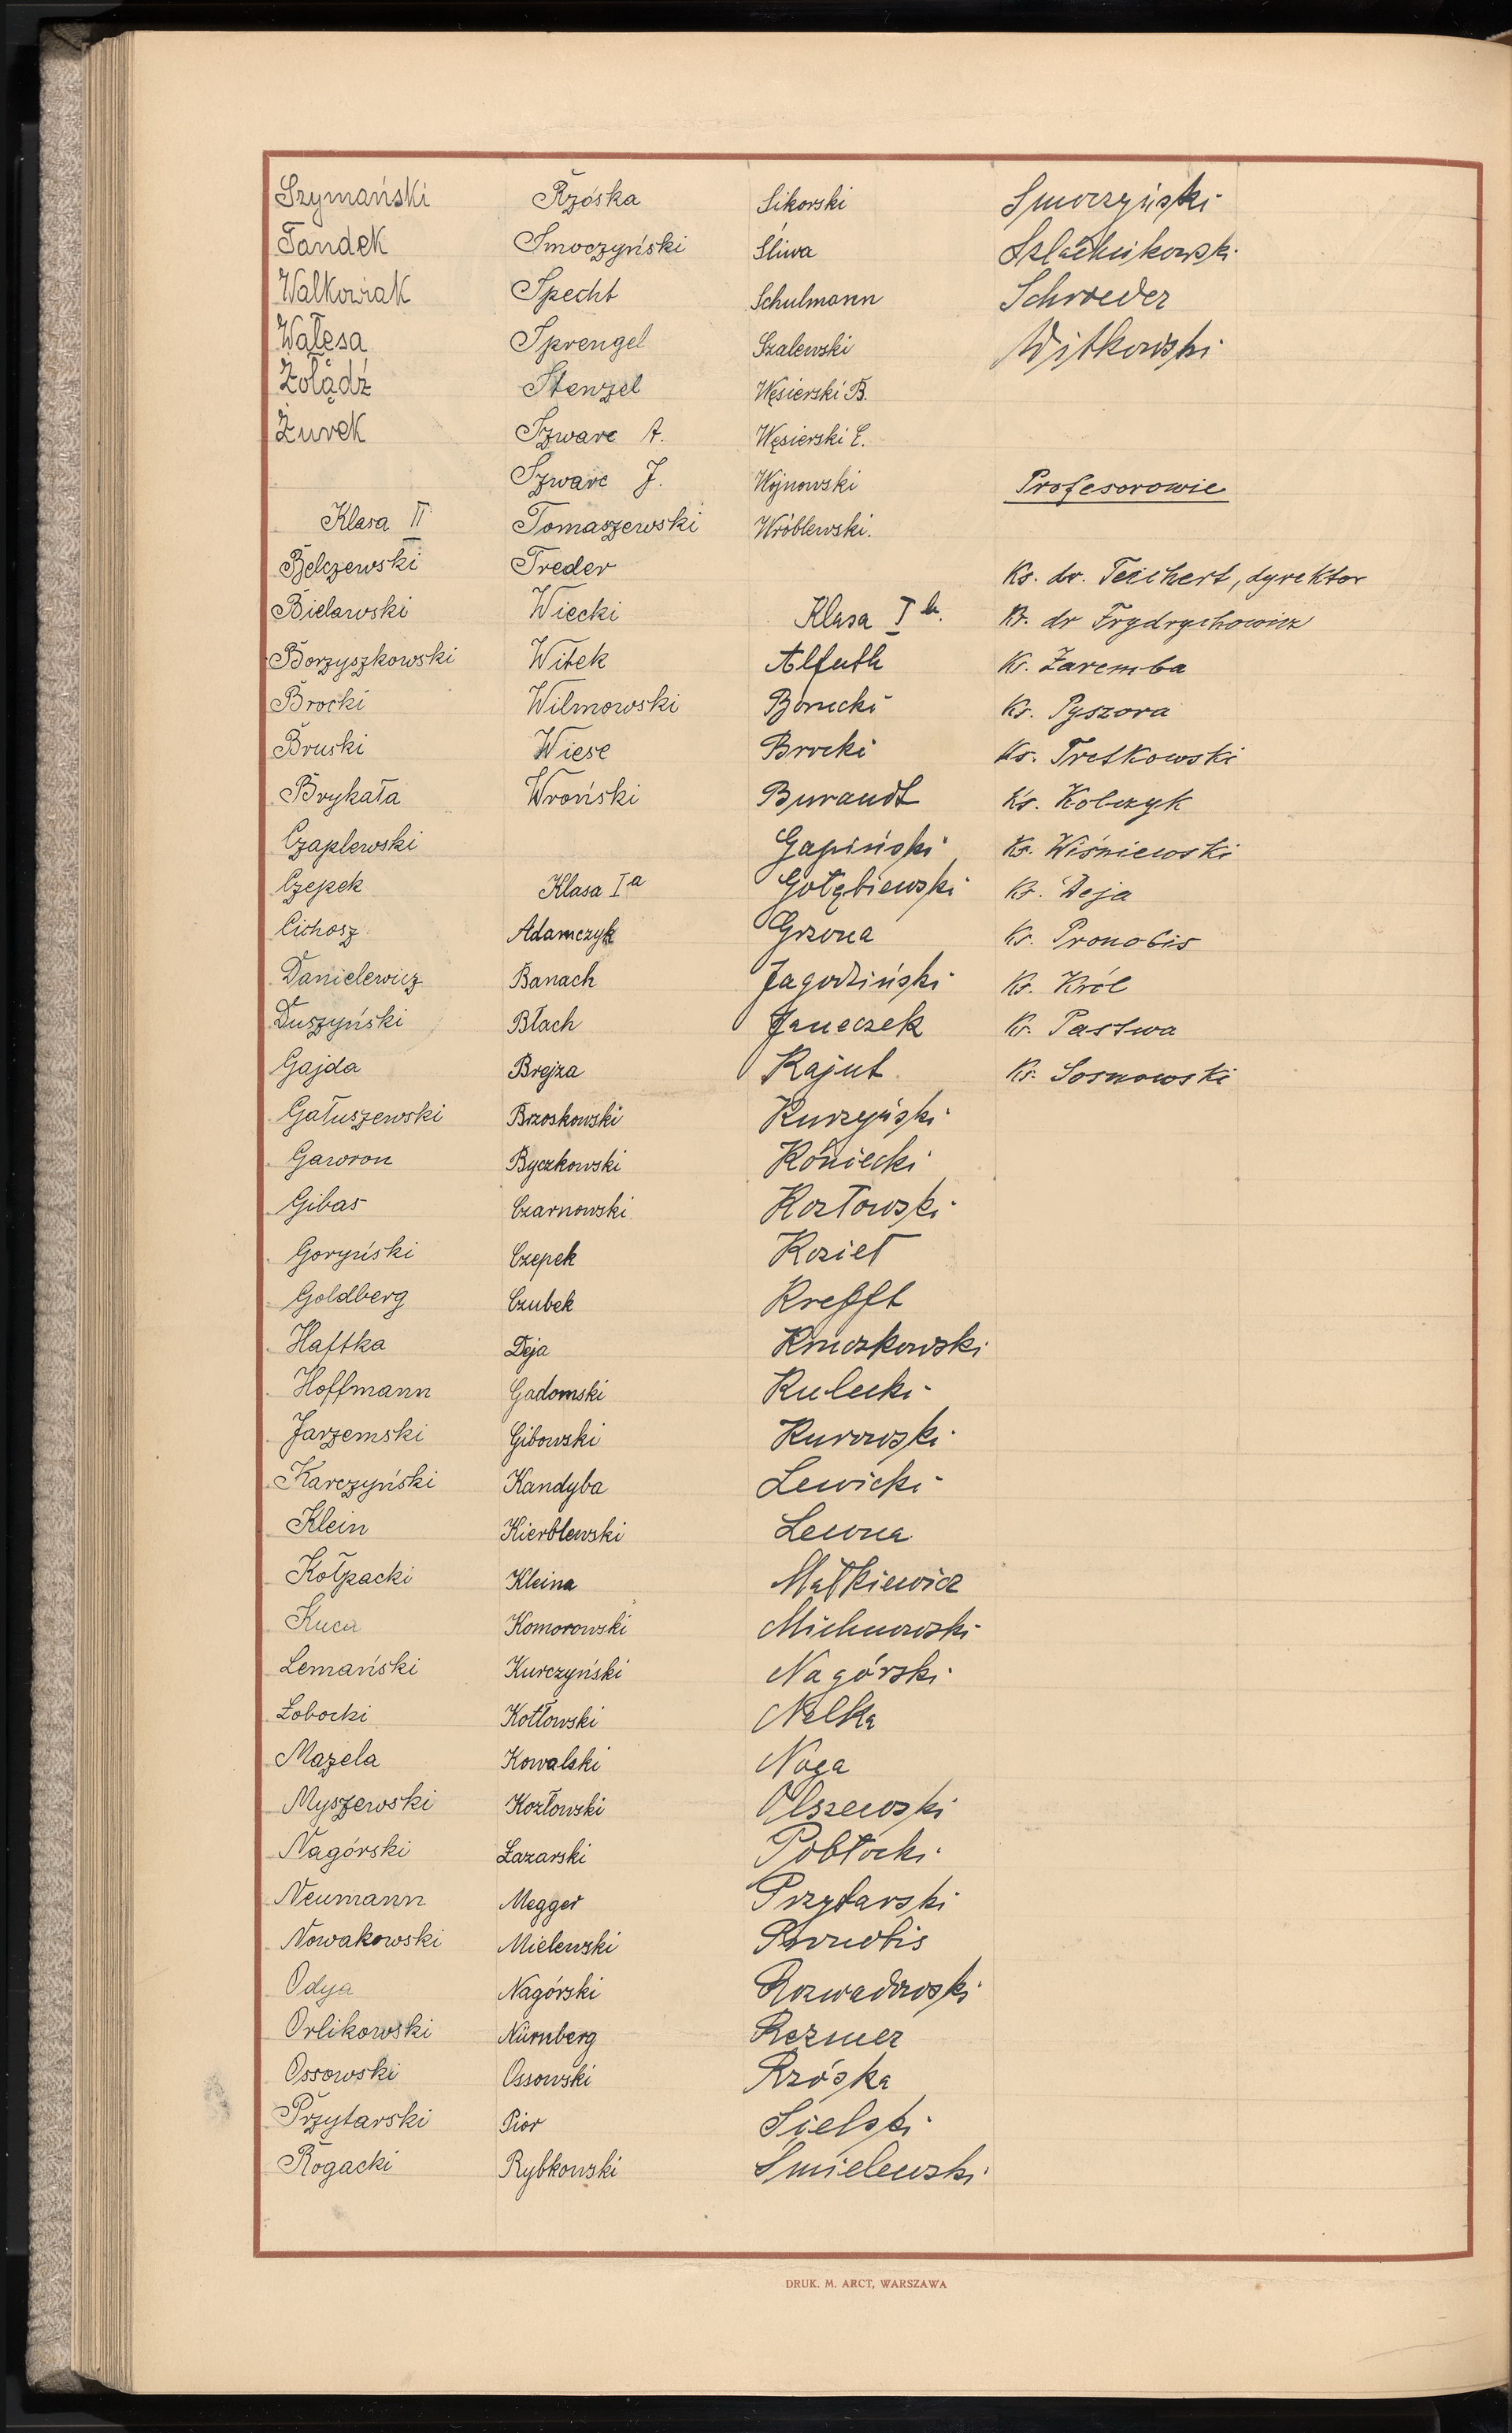 Szymański
Tandek
Walkowiak
Wałęsa
Żołądź
Żurek
Klasa II
Bełczewski
Bielawski
Borzyszkowski
Brocki
Bruski
Brykała
Czaplewski
Czepek
Cichosz
Danielewicz
Duszyński
Gajda
Gałuszewski
Gawron
Gibas
Goryński
Goldberg
Haftka
Hoffmann
Jarzemski
Karczyński
Klein
Kołpacki
Kuca
Lemański
Łobocki
Mazela
Myszewski
Nagórski
Neumann
Nowakowski
Odya
Orlikowski
Ossowski
Przytarski
Rogacki
Rzóska
Smoczyński
Specht
Sprengel
Stenzel
Szwarc A.
Szwarc J.
Tomaszewski
Treder
Wiecki
Witek
Wilmowski
Wiese
Wroński
Klasa Ia
Adamczyk
Banach
Błach
Brejza
Brzoskowski
Byczkowski
Czarnowski
Czepek
Czubek
Deja
Gadomski
Gibowski
Kandyba
Kierblewski
Kleina
Komorowski
Kurczyński
Kotłowski
Kowalski
Kozłowski
Łazarski
Megger
Mielewski
Nagórski
Nürnberg
Ossowski
Pior
Rybkowski
Sikorski
Śliwa
Schulmann
Szalewski
Węsierski B.
Węsierski E.
Wojnowski
Wróblewski.
Klasa Ib.
Alfuth
Borucki
Brocki
Burandt
Gapiński
Gołębiewski
Grzona
Jagodziński
Janeczek
Kajut
Kurzyński
Koniecki
Kozłowski
Kozieł
Krefft
Kruczkowski
Kulecki
Kurowski
Lewicki
Lewna
Małkiewicz
Michnowski
Nagórski
Nelka
Noga
Olszewski
Pobłocki
Przytarski
Pronobis
Rozwadowski
Rezmer
Rzóska
Sielski
Smielewski
Smoczyński
Szlachcikowski
Schroeder
Witkowski
Profesorowie
Ks. dr. Teichert, dyrektor
Ks. dr Frydrychowicz
Ks. Zaremba
Ks. Pyszora
Ks. Tretkowski
Ks. Kolczyk
Ks. Wiśniewski
Ks. Deja
Ks. Pronobis
Ks. Król
Ks. Pastwa
Ks. Sosnowski
DRUK. M. ARCT, WARSZAWA